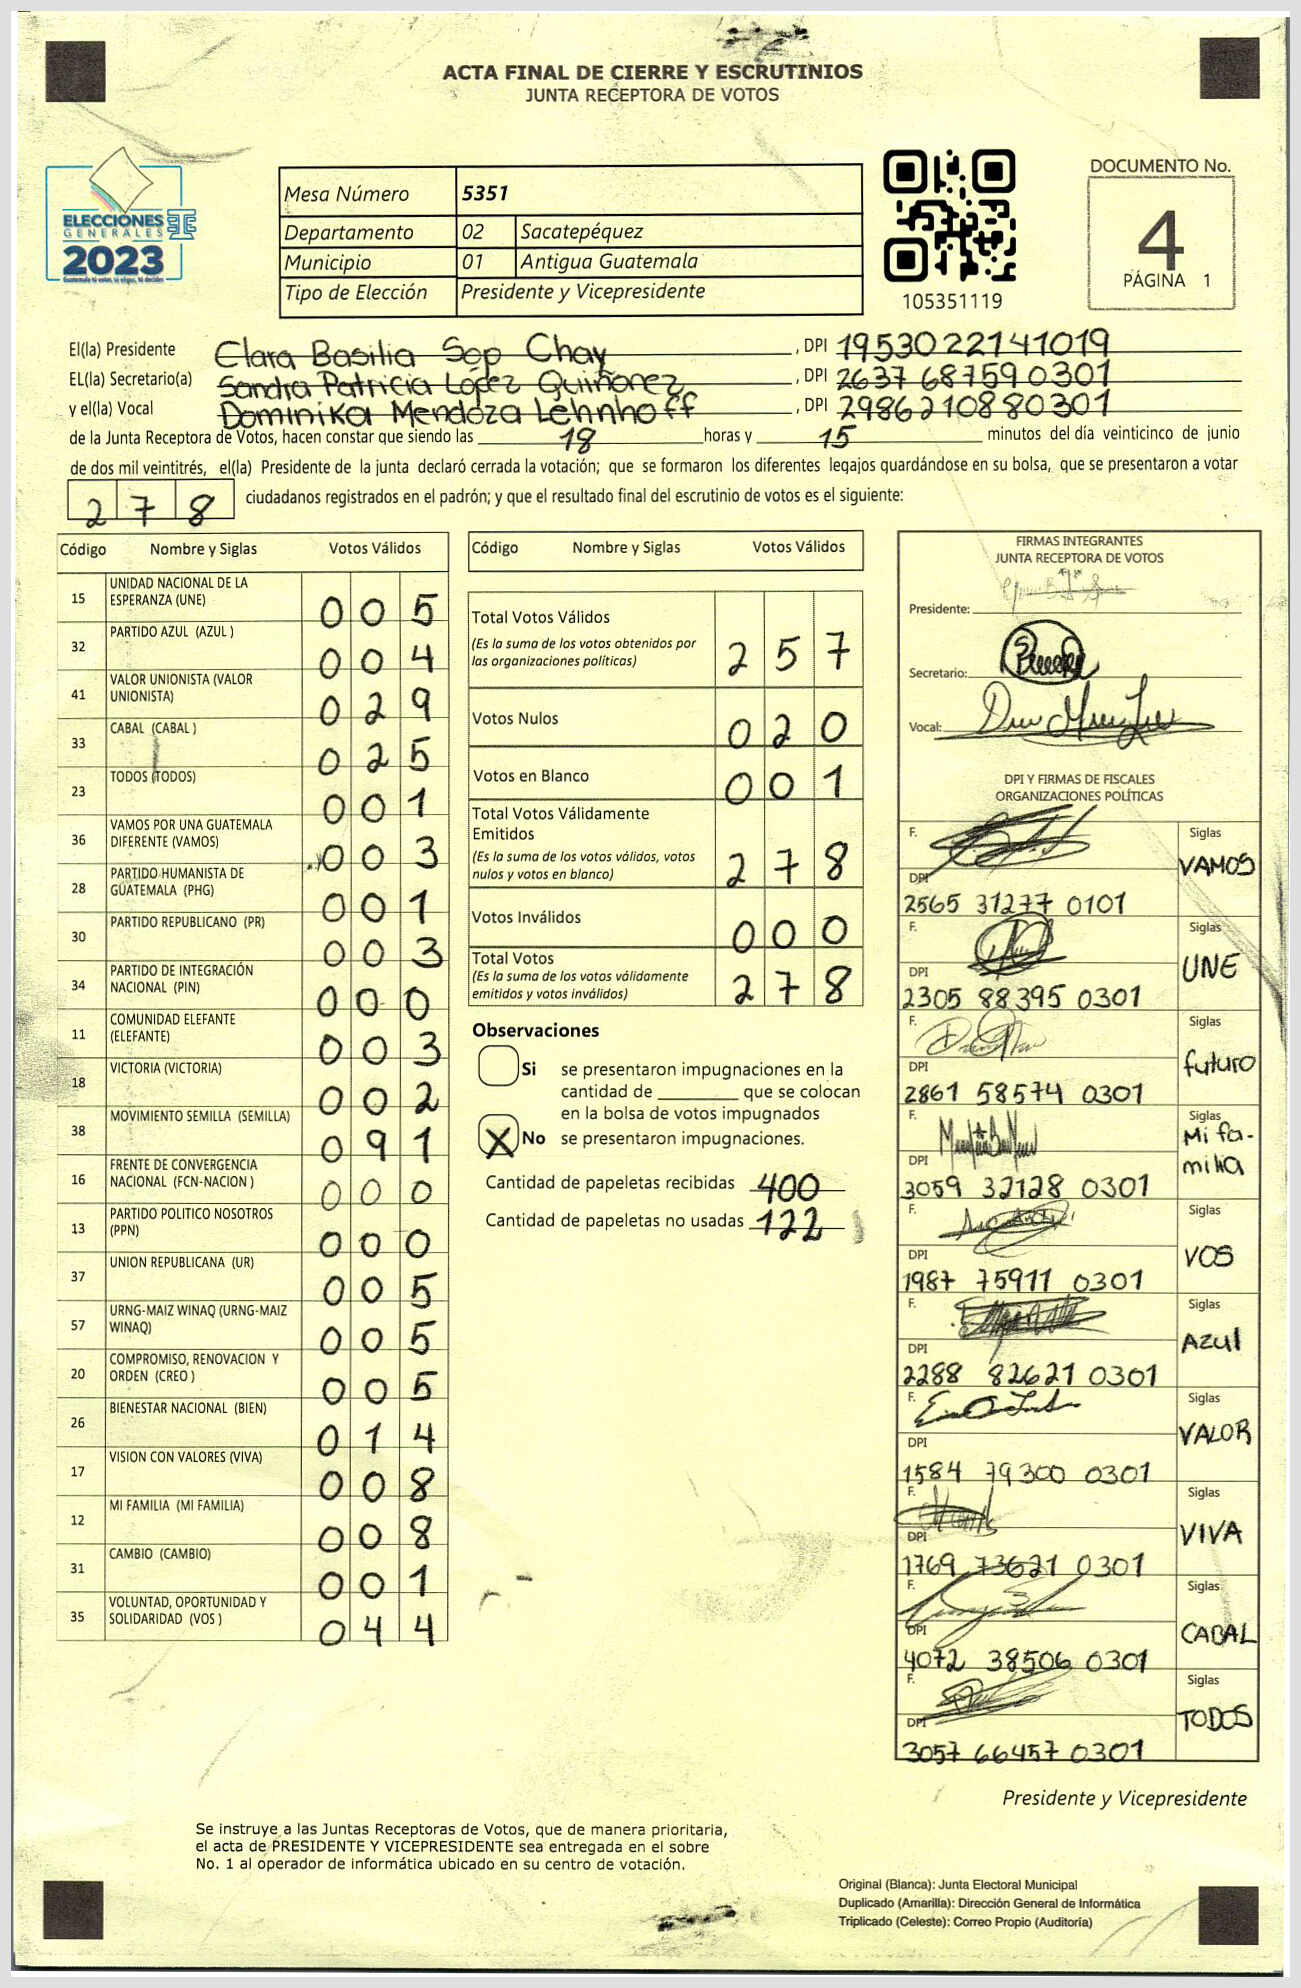 ACTA FINAL DE CIERRE Y ESCRUTINIOS
JUNTA RECEPTORA DE VOTOS
ELECCIONES
GENERALES
2023
Mesa Número 5351
Departamento 02 Sacatepéquez
Municipio 01 Antigua Guatemala
Tipo de Elección Presidente y Vicepresidente
105351119
DOCUMENTO No.
4
PÁGINA 1
El(la) Presidente Clara Basilia Sop Chay, DPI 1953022141019
EL(la) Secretario(a) Sandra Patricia López Quiñonez, DPI 2637 68759 0301
y el(la) Vocal Dominika Mendoza Lehnhoff, DPI 2986210880301
de la Junta Receptora de Votos, hacen constar que siendo las 18 horas y 15 minutos del día veinticinco de junio
de dos mil veintitrés, el(la) Presidente de la junta declaró cerrada la votación; que se formaron los diferentes legajos guardándose en su bolsa, que se presentaron a votar
278 ciudadanos registrados en el padrón; y que el resultado final del escrutinio de votos es el siguiente:
Código Nombre y Siglas Votos Válidos
15 UNIDAD NACIONAL DE LA ESPERANZA (UNE) 005
32 PARTIDO AZUL (AZUL ) 004
41 VALOR UNIONISTA (VALOR UNIONISTA) 029
33 CABAL (CABAL ) 025
23 TODOS (TODOS) 001
36 VAMOS POR UNA GUATEMALA DIFERENTE (VAMOS) 003
28 PARTIDO HUMANISTA DE GUATEMALA (PHG) 001
30 PARTIDO REPUBLICANO (PR) 003
34 PARTIDO DE INTEGRACIÓN NACIONAL (PIN) 000
11 COMUNIDAD ELEFANTE (ELEFANTE) 003
18 VICTORIA (VICTORIA) 002
38 MOVIMIENTO SEMILLA (SEMILLA) 091
16 FRENTE DE CONVERGENCIA NACIONAL (FCN-NACION ) 000
13 PARTIDO POLITICO NOSOTROS (PPN) 000
37 UNION REPUBLICANA (UR) 005
57 URNG-MAIZ WINAQ (URNG-MAIZ WINAQ) 005
20 COMPROMISO, RENOVACION Y ORDEN (CREO ) 005
26 BIENESTAR NACIONAL (BIEN) 014
17 VISION CON VALORES (VIVA) 008
12 MI FAMILIA (MI FAMILIA) 008
31 CAMBIO (CAMBIO) 001
35 VOLUNTAD, OPORTUNIDAD Y SOLIDARIDAD (VOS ) 044
Código Nombre y Siglas Votos Válidos
Total Votos Válidos
(Es la suma de los votos obtenidos por las organizaciones políticas) 257
Votos Nulos 020
Votos en Blanco 001
Total Votos Válidamente Emitidos
(Es la suma de los votos válidos, votos nulos y votos en blanco) 278
Votos Inválidos 000
Total Votos
(Es la suma de los votos válidamente emitidos y votos inválidos) 278
Observaciones
Si se presentaron impugnaciones en la
cantidad de ________ que se colocan
en la bolsa de votos impugnados
X No se presentaron impugnaciones.
Cantidad de papeletas recibidas 400
Cantidad de papeletas no usadas 122
FIRMAS INTEGRANTES
JUNTA RECEPTORA DE VOTOS
Presidente:
Secretario:
Vocal:
DPI Y FIRMAS DE FISCALES
ORGANIZACIONES POLÍTICAS
F. Siglas VAMOS
DPI 2565 31277 0101
F. Siglas UNE
DPI 2305 88395 0301
F. Siglas futuro
DPI 2861 58574 0301
F. Siglas Mi fa-
milia
DPI 3059 32128 0301
F. Siglas VOS
DPI 1987 75911 0301
F. Siglas Azul
DPI 2288 82621 0301
F. Siglas VALOR
DPI 1584 79300 0301
F. Siglas VIVA
DPI 1769 73621 0301
F. Siglas CABAL
DPI 4072 38506 0301
F. Siglas TODOS
DPI 3057 66457 0301
Presidente y Vicepresidente
Se instruye a las Juntas Receptoras de Votos, que de manera prioritaria,
el acta de PRESIDENTE Y VICEPRESIDENTE sea entregada en el sobre
No. 1 al operador de informática ubicado en su centro de votación.
Original (Blanca): Junta Electoral Municipal
Duplicado (Amarilla): Dirección General de Informática
Triplicado (Celeste): Correo Propio (Auditoría)